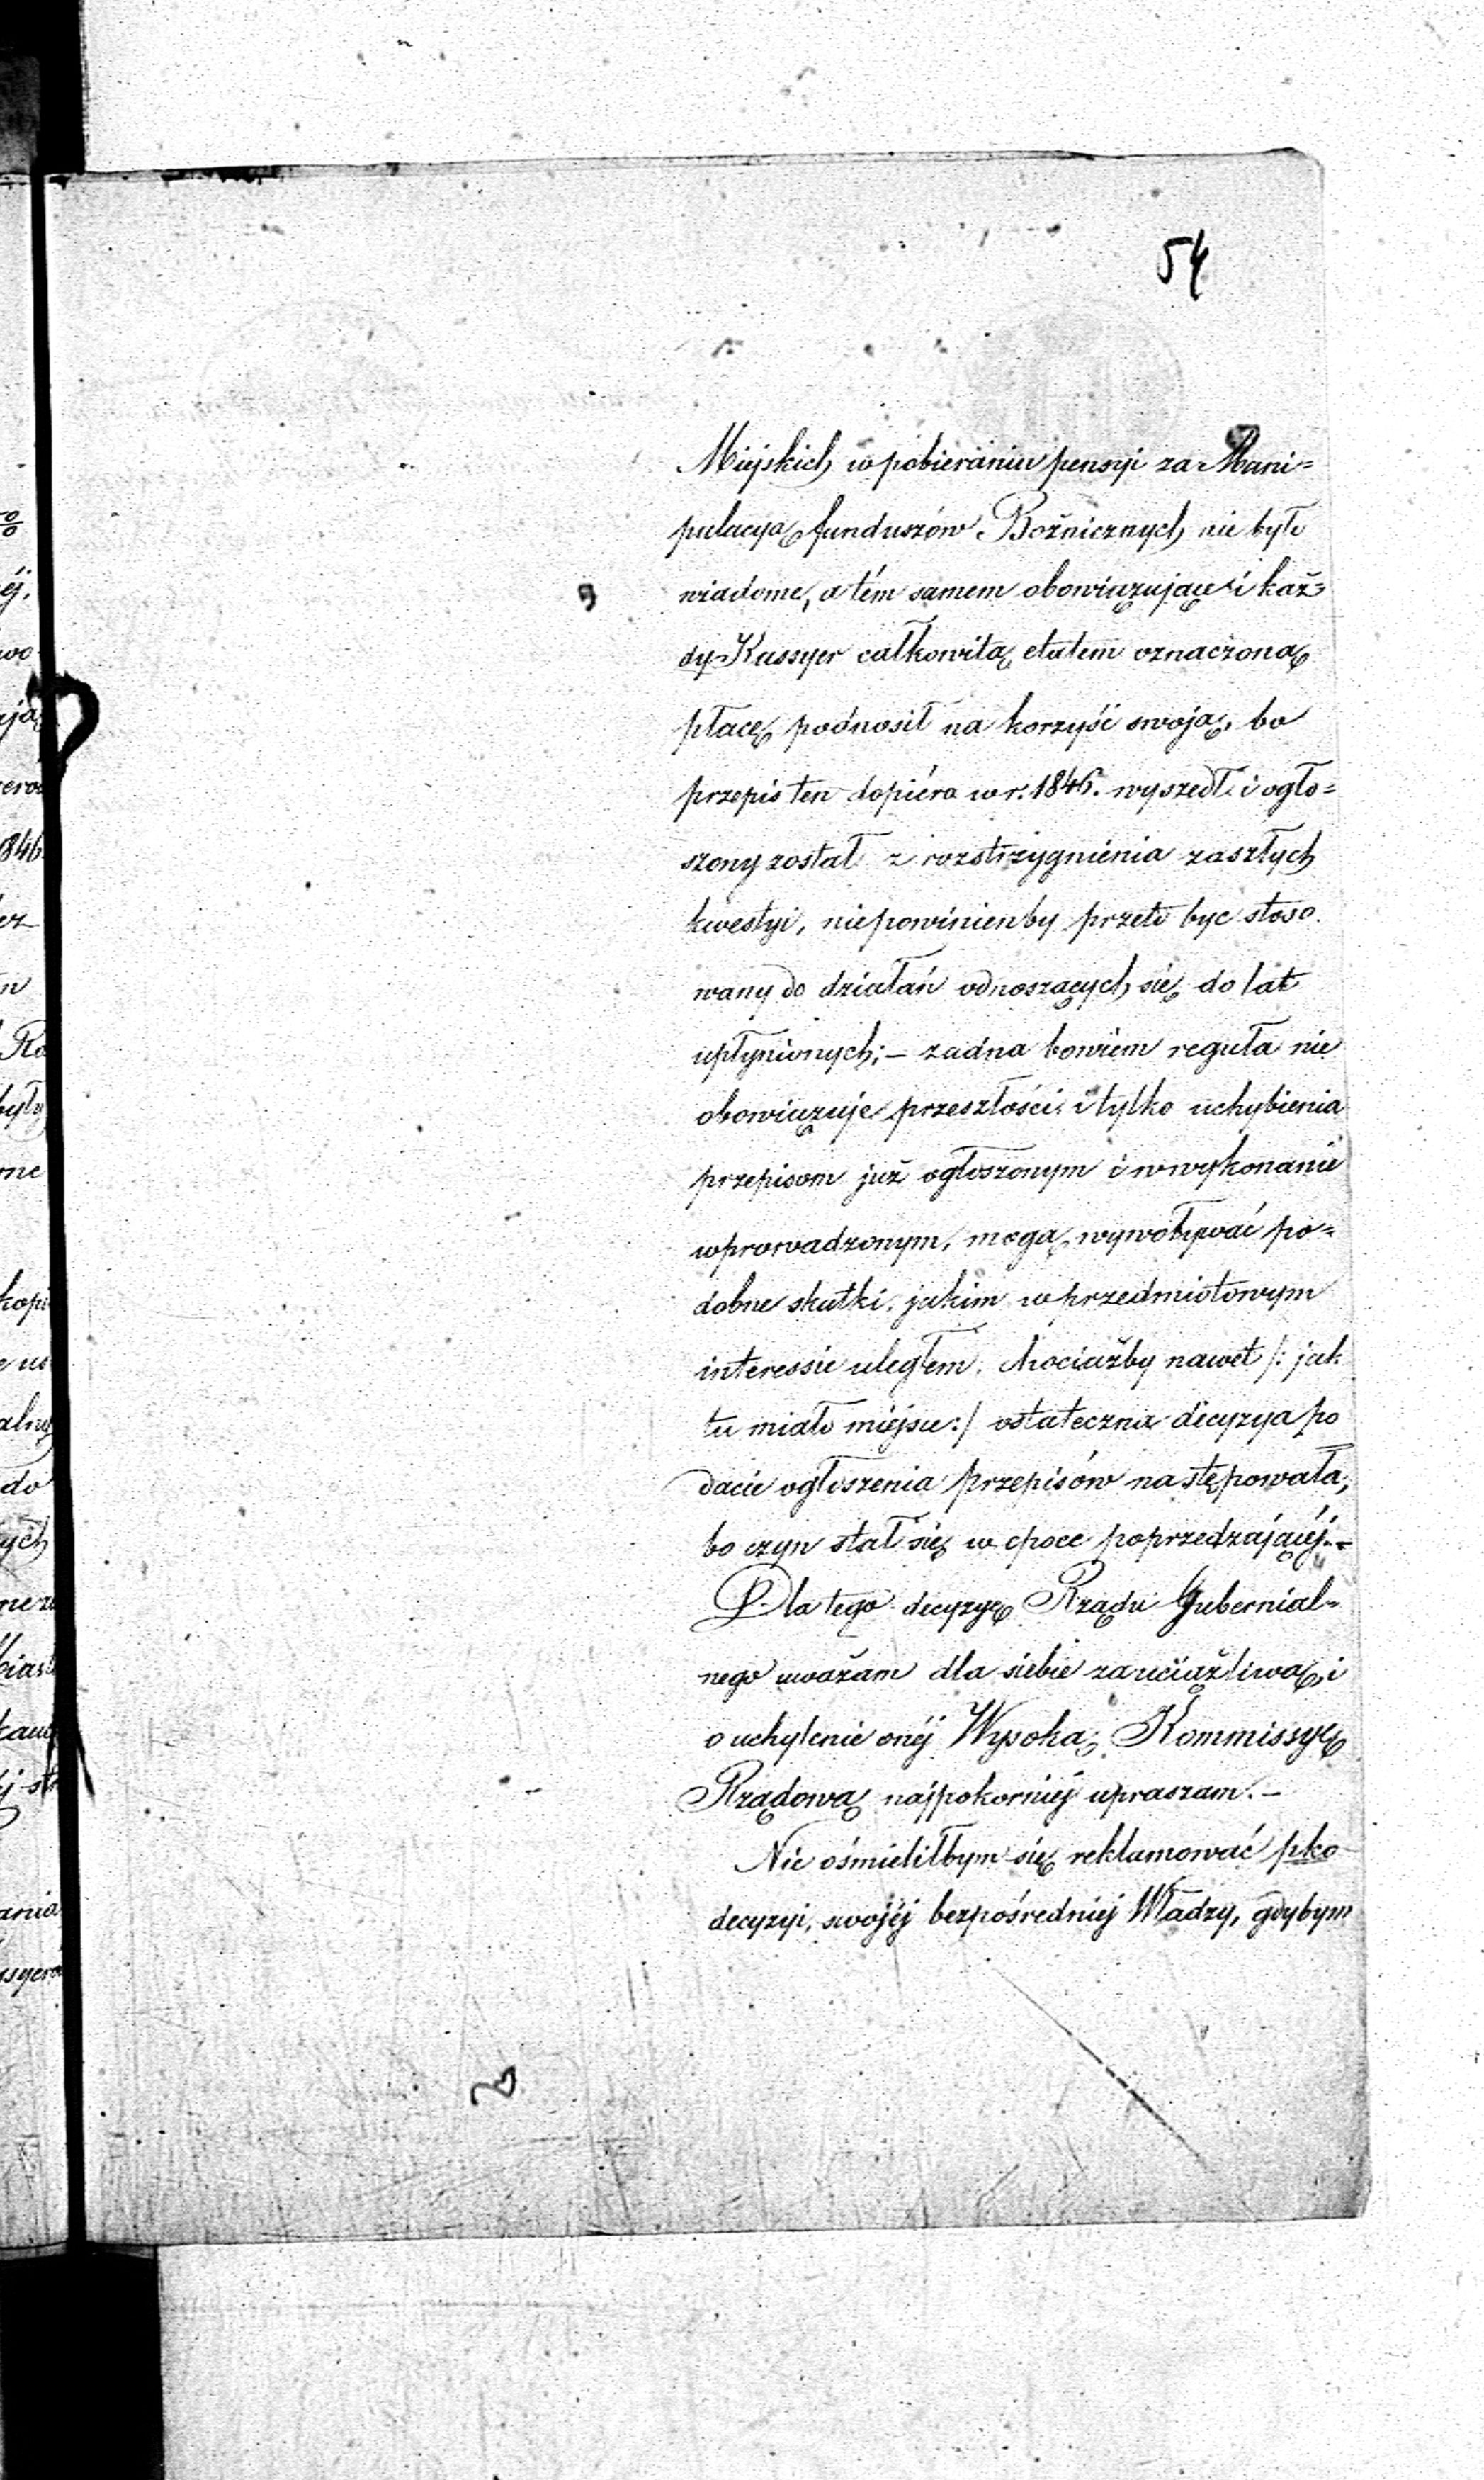 54
Miejskich w pobieraniu pensyi za Mani=
pulacyą funduszów Bożnicznych nie było
wiadome, a tém samem obowiązujące i każ=
dy Kassyer całkowitą etatem oznaczoną
płacę podnosił na korzyść swoją, bo
przepis ten dopiéro w r. 1846. wyszedł i ogło=
szony został z rozstrzygnienia zaszłych
kwestyi, niepowinienby przeto byc stoso
wany do działań odnoszących się do lat
upłynionych; – żadna bowiem reguła nie
obowiązuje przeszłości i tylko uchybienia
przepisom już ogłoszonym i w wykonanie
wprowadzonym, mogą wywoływać po=
dobne skutki, jakim w przedmiotowym
interessie uległem, chociażby nawet /: jak
tu miało miejsce :/ ostateczna decyzya po
dacie ogłoszenia przepisów następowała,
bo czyn stał się w epoce poprzedzającéj. –
Dla tego decyzyę Rządu Gubernial=
nego uważam dla siebie za uciążliwą, i
o uchylenie onéj Wysoką Kommissyę
Rządową najpokorniéj upraszam. –
Nie ośmieliłbym się reklamować pko
decyzyi, swojéj bezpośredniéj Władzy, gdybym